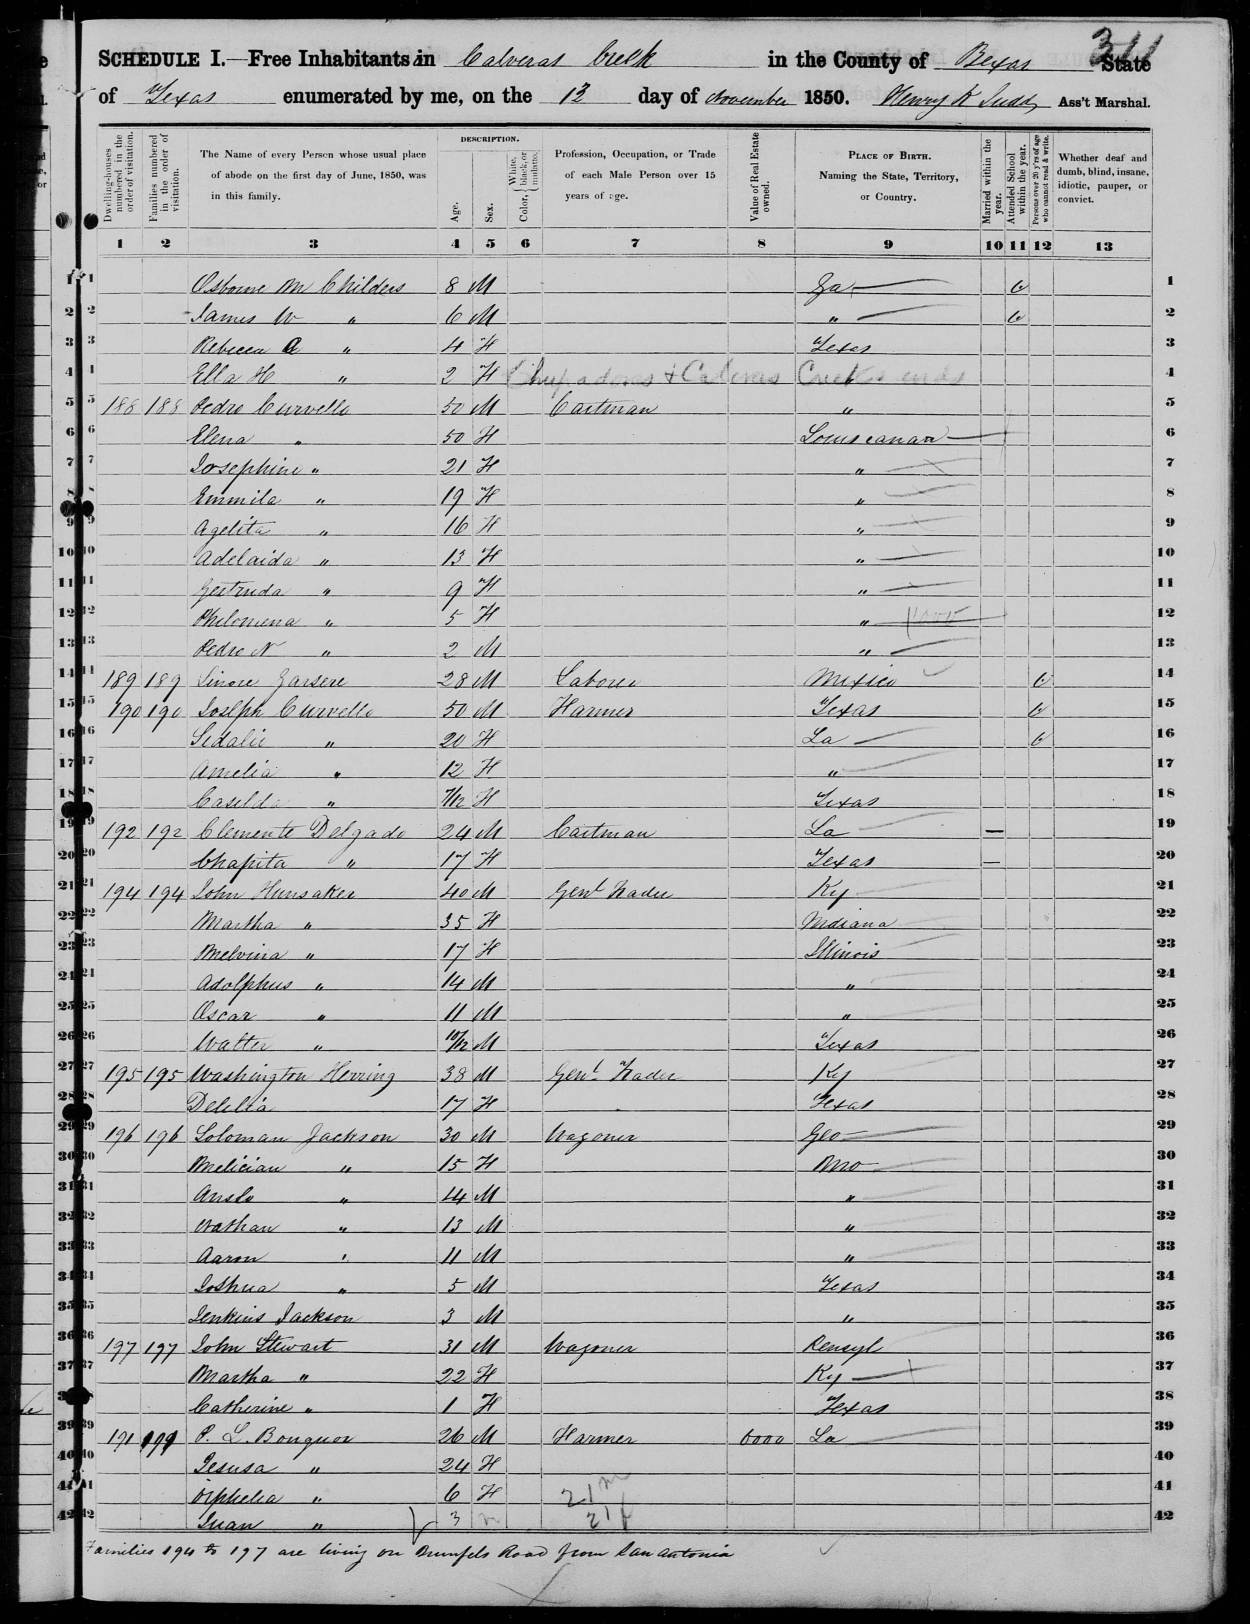 311
SCHEDULE I.—Free Inhabitants in Calveras Creek in the County of Bexar State
of Texas enumerated by me, on the 12 day of November 1850. Henry K Judd Ass't Marshal.
Dwelling-houses numbered in the order of visitation.
Families numbered in the order of visitation.
The Name of every Person whose usual place of abode on the first day of June, 1850, was in this family.
DESCRIPTION.
Age.
Sex.
Color, White, black, or mulatto.
Profession, Occupation, or Trade of each Male Person over 15 years of age.
Value of Real Estate owned.
PLACE OF BIRTH. Naming the State, Territory, or Country.
Married within the year.
Attended School within the year.
Persons over 20 y'rs of age who cannot read & write.
Whether deaf and dumb, blind, insane, idiotic, pauper, or convict.
1 2 3 4 5 6 7 8 9 10 11 12 13
1 Osborne M Childers 8 M Ga 1
2 James W " 6 M " 2
3 Rebecca A " 4 F Texas 3
4 Ella H " 2 F Chupadoras & Calveras Creeks ends " 4
5 188 188 Pedro Curvello 50 M Cartman " 5
6 Elena " 50 F Louiscanana 6
7 Josephine " 21 F " 7
8 Emmila " 19 F " 8
9 Agelita " 16 F " 9
10 Adelaida " 13 F " 10
11 Gertruda " 9 F " 11
12 Philomena " 5 F " 12
13 Pedro N " 2 M " 13
14 189 189 Linore Garsere 28 M Laborer Mexico 14
15 190 190 Joseph Curvello 50 M Farmer Texas 15
16 Sedalie " 20 F La 16
17 Amelia " 12 F " 17
18 Caselda " 7/12 F Texas 18
19 192 192 Clemente Delgado 24 M Cartman La — 19
20 Chapita " 17 F Texas — 20
21 194 194 John Hunsaker 40 M Genl Trader Ky 21
22 Martha " 35 F Indiana 22
23 Melvina " 17 F Illinois 23
24 Adolphus " 14 M " 24
25 Oscar " 11 M " 25
26 Walter " 10/12 M Texas 26
27 195 195 Washington Herring 38 M Genl Trader Ky 27
28 Delilia 17 F Texas 28
29 196 196 Soloman Jackson 30 M Wagoner Geo 29
30 Melician " 15 F Mo 30
31 Anslo " 14 M " 31
32 Nathan " 13 M " 32
33 Aaron " 11 M " 33
34 Joshua " 5 M Texas 34
35 Jenkins Jackson 3 M " 35
36 197 197 John Stewart 31 M Wagoner Pensyl 36
37 Martha " 22 F Ky 37
38 Catherine " 1 F Texas 38
39 191 191 P. L. Bouquor 26 M Farmer 6000 La 39
40 Jesusa " 24 F 40
41 Orphelia " 6 F 21 m 41
42 Juan " 3 m 21 f 42
Families 194 to 197 are living on Brunfels Road from San Antonia